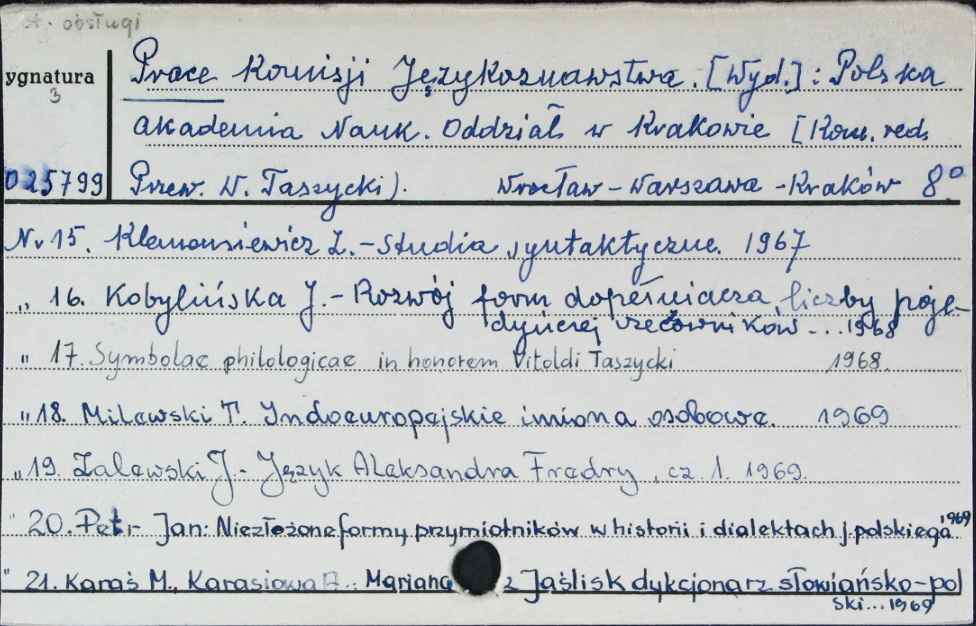 obsługi
ygnatura
3
025799
Prace Komisji Językoznawstwa. [Wyd.]: Polska
Akademia Nauk. Oddział w Krakowie [Kom. red.
Przew. W. Taszycki). Wrocław-Warszawa-Kraków 8°
Nr 15. Klemensiewicz Z. - Studia syntaktyczne. 1967
„ 16. Kobylińska J. - Rozwój form dopełniacza liczby poje-
dyńczej rzeczowników ... 1968
" 17. Symbolae philologicae in honorem Vitoldi Taszycki 1968.
" 18. Milewski T. Indoeuropejskie imiona osobowe. 1969
„ 19. Zalewski J. - Język Aleksandra Fredry, cz. 1. 1969.
" 20. Petr Jan: Niezłożone formy przymiotników w historii i dialektach j. polskiego 1969
" 21. Karaś M., Karasiowa A.: Mariana z Jaślisk dykcjonarz słowiańsko-pol
ski... 1969